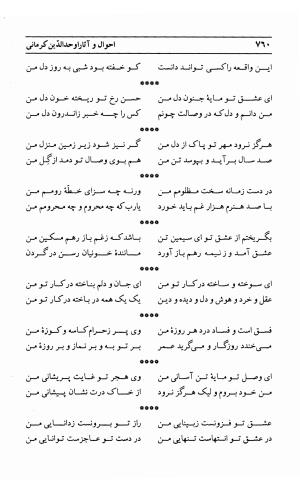 ۷۶۰ احوال و آثار اوحدالدّین کرمانی
این واقعه را کسی تواند دانست کو خفته بود شبی به روز دل من
****
ای عشق تو مایهٔ جنون دل من حسن رخ تو ریخته خون دل من
من دانم و دل که در وصالت چونم کس را چه خبر ز اندرون دل من
****
هرگز نرود مهر تو پاک از دل من گر نیز شود زیر زمین منزل من
صد سال برآید و بپوسد تن من هم بوی وصال تو دمد از گِل من
****
در دست زمانه سخت مظلومم من ورنه چه سزای خطّهٔ رومم من
با صد هنرم هزار غم باید خورد یارب که چه محروم و چه محرومم من
****
بگریختم از عشق تو ای سیمین تن باشد که ز غم باز رهم مسکین من
عشق آمد و ز نیمه رهم باز آورد مانندهٔ خونیان رسن در گردن
****
ای سوخته و ساخته در کار تو من ای جان و دلم بناخته در کار تو من
عقل و خرد و هوش و دل و دیده و دین یک یک همه در باخته در کار تو من
****
فسق است و فساد درد هر روزهٔ من وی پر ز حرام کاسه و کوزهٔ من
می‌خندد روزگار و می‌گرید عمر بر تو به و بر نماز و بر روزهٔ من
****
ای وصل تو مایهٔ تن آسانی من وی هجر تو غایت پریشانی من
من خود بروم و لیک هرگز نرود از خاک درت نشان پیشانی من
****
عشق تو فزونست ز بینایی من راز تو برونست ز دانایی من
در عشق تو انتهاست تنهایی من در دست تو عاجزست توانایی من